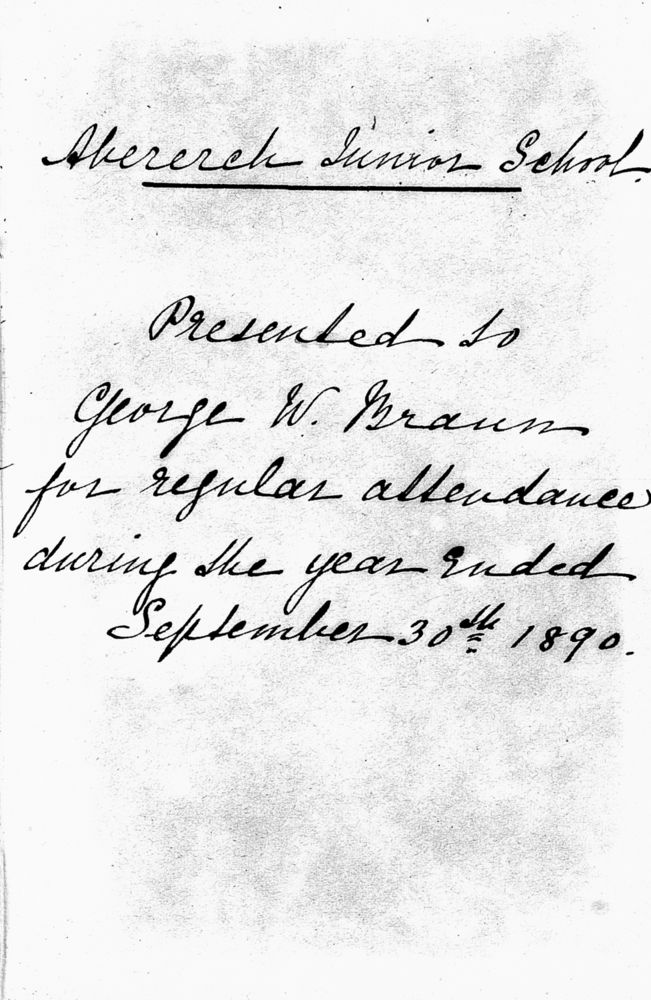 Abererch Junior School.
Presented to
George W. Braun
for regular attendance
during the year Ended
September 30th 1890.